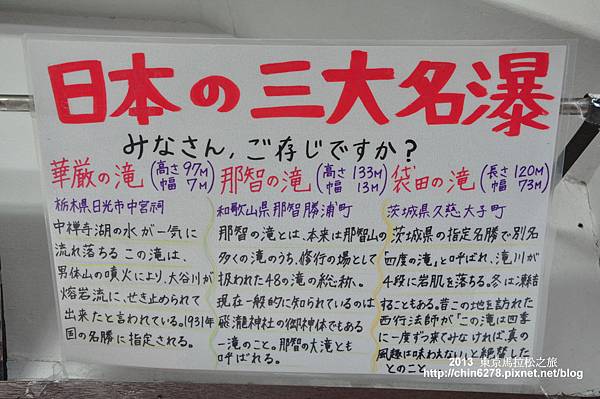 日本の三大名瀑
みなさん,ご存じですか?
華厳の滝(高さ97M 幅7M)
栃木県日光市中宮祠
中禅寺湖の水が一気に
流れ落ちるこの滝は、
男体山の噴火により、大谷川が
熔岩流に、せき止められて
出来たと言われている。1931年
国の名勝に指定される。
那智の滝(高さ133M 幅13M)
和歌山県那智勝浦町
那智の滝とは、本来は那智山の
多くの滝のうち、修行の場として
扱われた48の滝の総称。
現在一般的に知られているのは
飛瀧神社の御神体でもある
一滝のこと。那智の大滝とも
呼ばれる。
袋田の滝(長さ120M 幅73M)
茨城県久慈大子町
茨城県の指定名勝で別名
「四度の滝」と呼ばれ、滝川が
4段に岩肌を落ちる。冬は凍結
することもある。昔この地を訪れた
西行法師が「この滝は四季
に一度ずつ来てみなければ、真の
風趣は味わえない」と絶賛した
とのこと。
2013 東京馬拉松之旅
http://chin6278.pixnet.net/blog